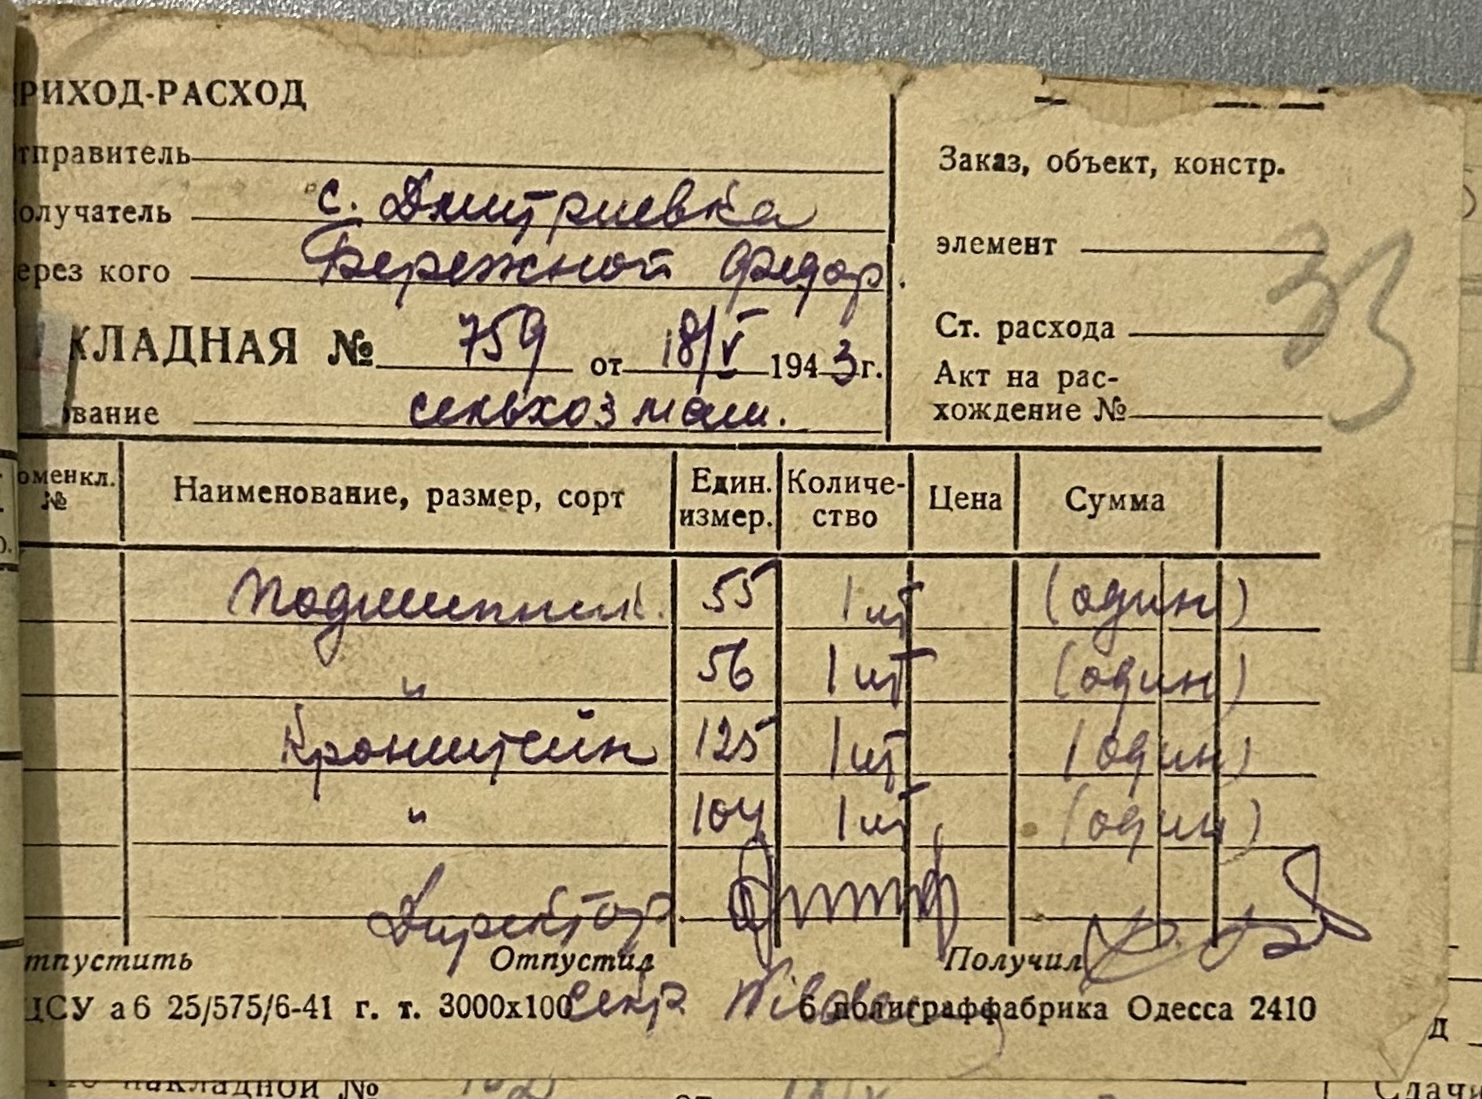 РИХОД-РАСХОД
тправитель
олучатель с. Дмитриевка
ерез кого Бережной Федор.
КЛАДНАЯ № 759 от 18/V 1943 г.
ование сельхозмаш.
Заказ, объект, констр.
элемент
Ст. расхода
Акт на рас-
хождение №
33
оменкл. № Наименование, размер, сорт Един. измер. Количе-ство Цена Сумма
Подшипник. 55 1 шт (один)
" 56 1 шт (один)
Кронштейн 125 1 шт (один)
" 104 1 шт (один)
Директор
тпустить Отпустил Получил
Секр
ЦСУ а6 25/575/6-41 г. т. 3000х100 6 полиграффабрика Одесса 2410
накладной № от
Сдачи